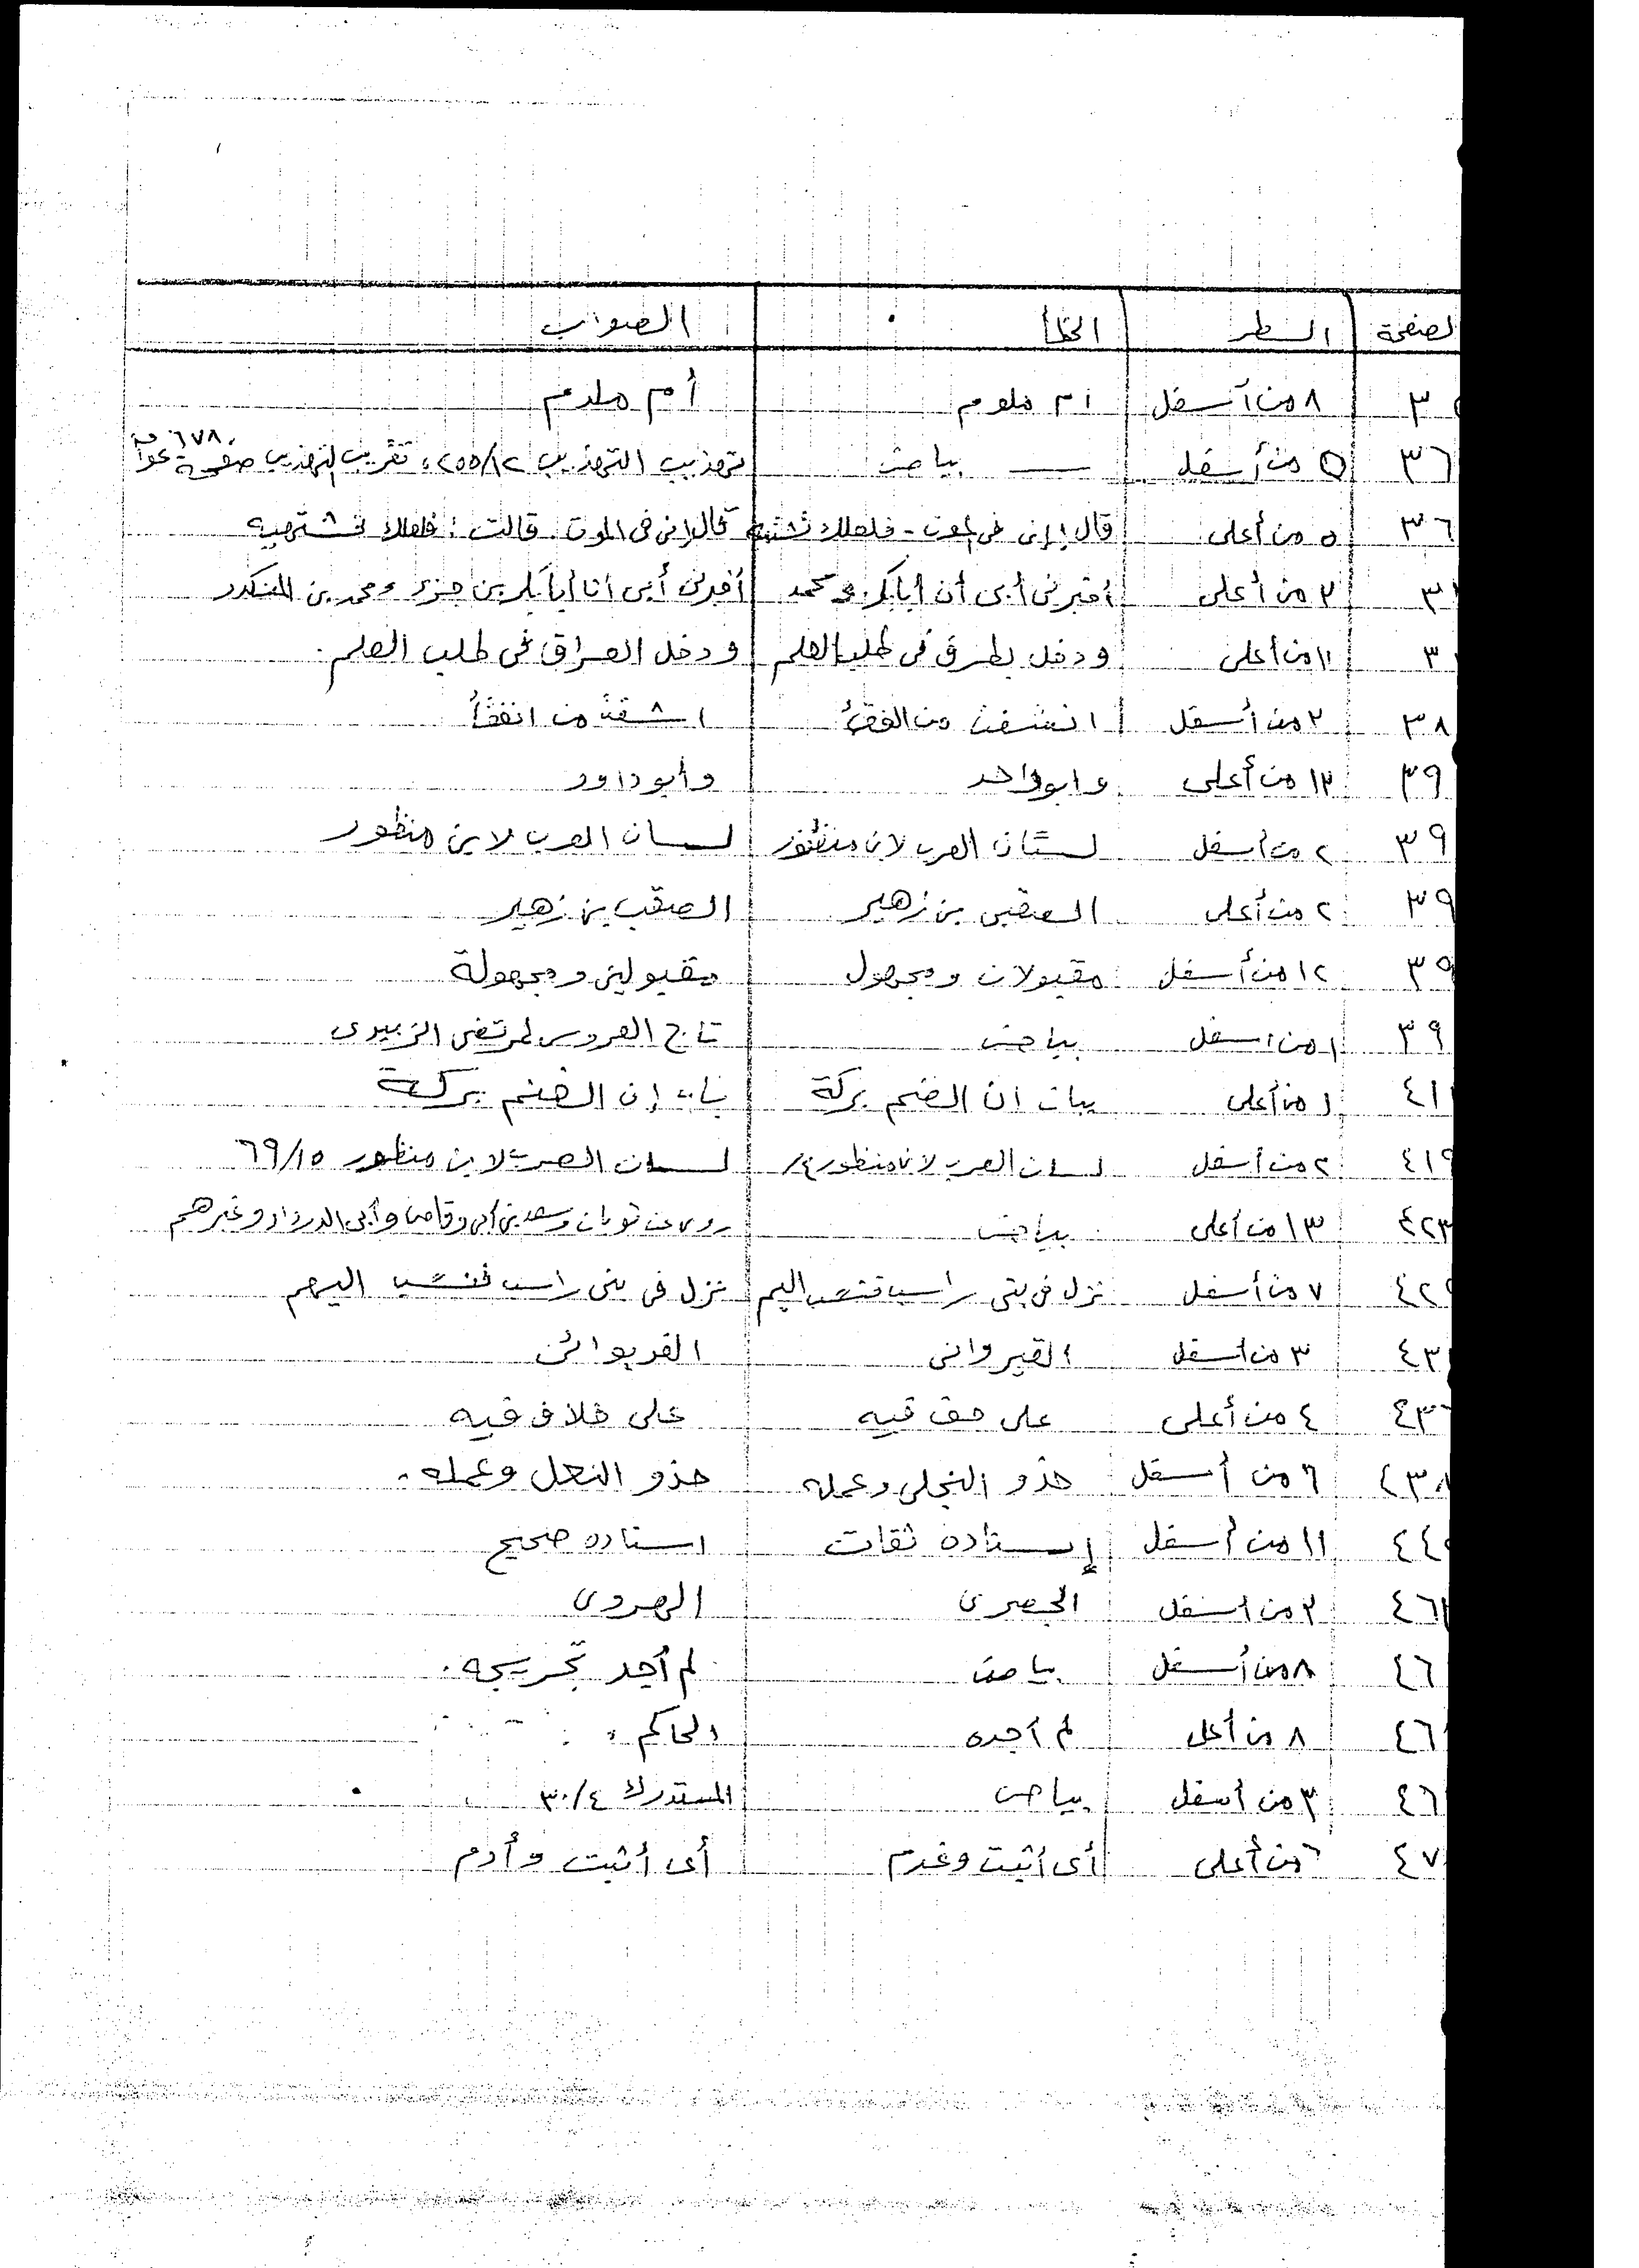 الصفحة السطر الخطأ الصواب
٣ ٨ من أسفل ام ملوم أم ملدم
٣٦ ٥ من أسفل بياض تهذيب التهذيب ٢٥٥/١٢، تقريب التهذيب صفحة ٦٧٨
٣٦ ٥ من أعلى قال إنى فى الموت - فلعلك تشتهيه قال إنى فى الموت. قالت: فلعلك تشتهيه
٣ ٣ من أعلى أخبرنى أبى أن أبا بكر محمد أخبرنى أبى أنا أبا بكر بن حزم ومحمد بن المنكدر
٣ ١١ من أعلى ودخل بطرق فى طلب العلم ودخل العراق فى طلب العلم.
٣٨ ٢ من أسفل انشقت من الفقأ اشقت من انفقأ
٣٩ ١٣ من أعلى وابو واحد وأبو داود
٣٩ ٢ من أسفل لستان العرب لابن منظور لسان العرب لابن منظور
٣٩ ٢ من أعلى الصقبى بن زهير الصقب بن زهير
٣٩ ١٢ من أسفل مقبولان ومجهول مقبولين ومجهولة
٣٩ ١ من اسفل بياض تاج العروس لمرتضى الزبيدى
٤١ ١ من أعلى بيان ان الغنم بركة باب إن الغنم بركة
٤١٩ ٢ من أسفل لسان العرب لابن منظور /٤ لسان العرب لابن منظور ٦٩/١٥
٤٢٣ ١٣ من أعلى بياض روى عن ثوبان وسعد بن أبى وقاص وأبى الدرداء وغيرهم
٤٢ ٧ من أسفل نزل فى بنى راسب فنسب اليم نزل فى بنى راسب فنسب اليهم
٤٣ ٣ من أسفل القيروانى الفريوائى
٤٣ ٤ من أعلى على حق فيه على خلاف فيه
٤٣٨ ٦ من أسفل حذو النجلى وعمله حذو النعل وعمله.
٤٤ ١١ من أسفل إسناده ثقات اسناده صحيح
٤٦ ٣ من اسفل الجصرى الهروى
٤٦ ٨ من أسفل بياض لم أجد تخريجه.
٤٦ ٨ من أعلى لم أجده الحاكم
٤٦ ٣ من أسفل بياض المستدرك ٣٠/٤
٤٧ ٦ من أعلى أى أثبت وغدم أى أثبت وأدم